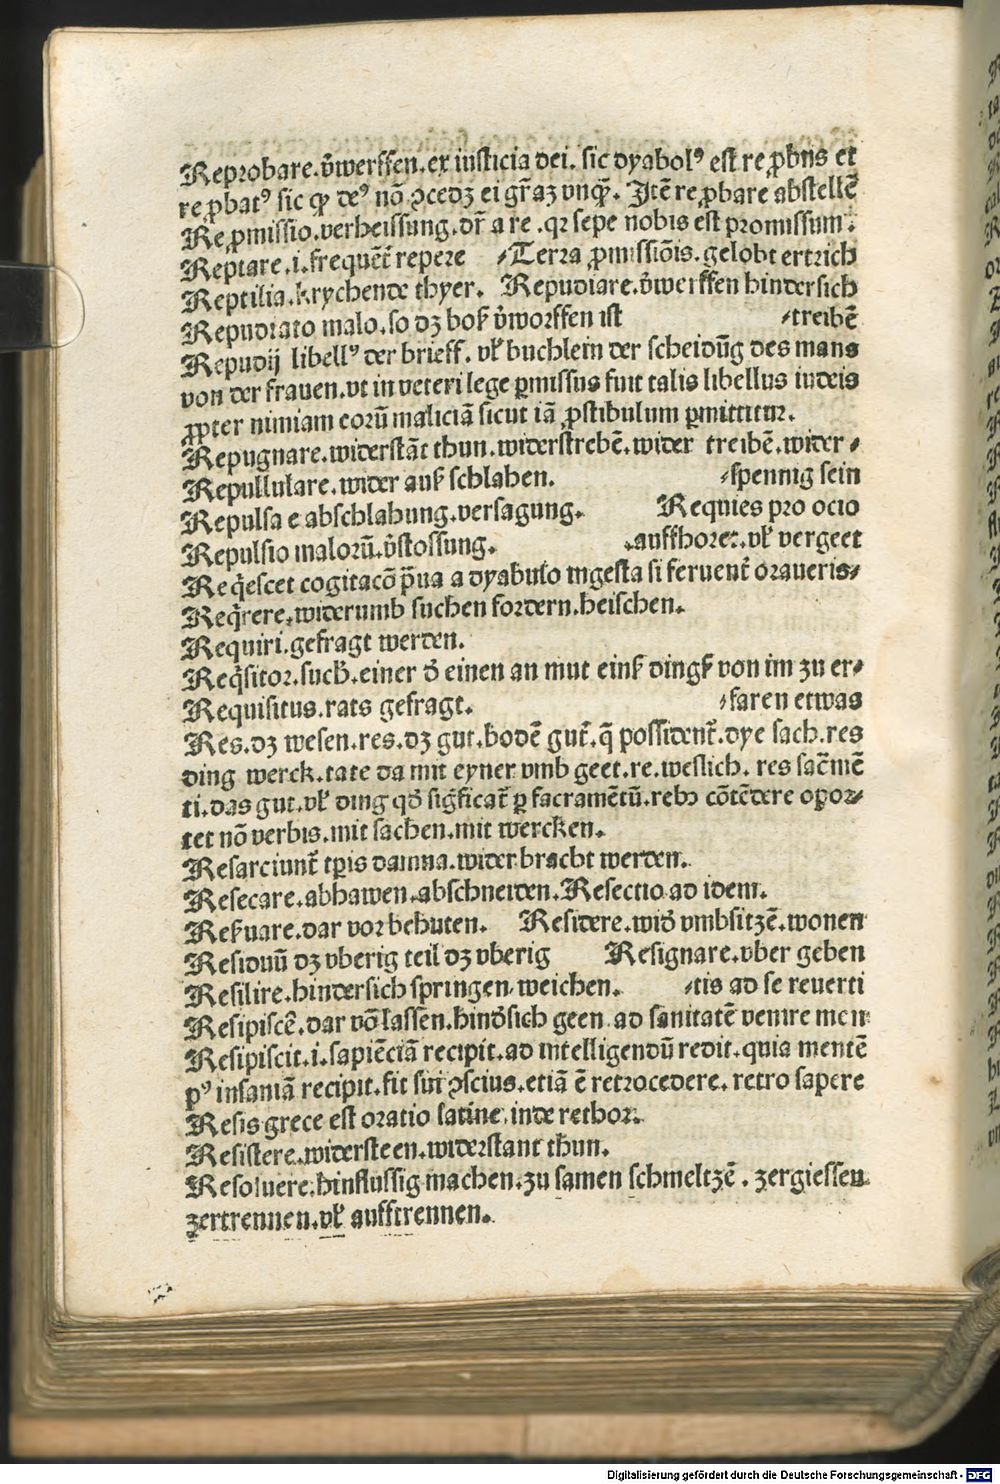 Reprobare.v̾werffen.ex iusticia dei. sic dyabolꝰ est reꝓbus et
reꝓbatꝰ sic ꝙ deꝰ nō ꝓcedꝫ ei gr̄aꝫ vnqꝫ. Itē reꝓbare abstellē
Reꝓmissio.verheissung.dr̄ a re.qꝛ sepe nobis est promissum:
Reptare.i.frequēt̄ repere ⸗Terra ꝓmissiōis.gelobt ertrich
Reptilia.krychende thyer. Repudiare.v̾werffen hindersich
Repudiato malo.so dꝫ boß v̾worffen ist ⸗treibē
Repudij libellꝰ der brieff.vl̄ buchlein der scheidūg des mans
von der frauen.vt in veteri lege ꝑmissus fuit talis libellus iudeis
ꝓpter nimiam eorū maliciā sicut iā ꝓstibulum ꝑmittitur.
Repugnare.widerstāt thun.widerstrebē.wider treibē.wider⸗
Repullulare.wider auß schlahen. ⸗spennig sein
Repulsa e abschlahung.versagung. Requies pro ocio
Repulsio malorū.v̾stossung. .auffhore:.vl̄ vergeet
Reqͥescet cogitacō p̄ua a dyabulo ingesta si feruent̄ oraueris⸗
Reqͥrere.widerumb suchen fordern.heischen.
Requiri.gefragt werden.
Reqͥsitor.such̾.einer d̾ einen an mut einß dingß von im zu er⸗
Requisitus.rats gefragt. ⸗faren etwas
Res.dꝫ wesen.res.dꝫ gut.bodē gut̄.q̄ possident̄.dye sach.res
ding werck.tate da mit eyner vmb geet.re.weslich. res sac̄mē
ti.das gut.vl̄ ding qd̾ sigͥficat̄ ꝑ sacramētū.rebꝰ cōtēdere opor⸗
tet nō verbis.mit sachen.mit wercken.
Resarciunt̄ tp̄is damna.wider bracht werden.
Resecare.abhawen.abschneiden.Resectio ad idem.
Reß̾uare.dar vor behuten. Residere.wid̾ vmbsitzē.wonen
Residuū dꝫ vberig teil dꝫ vberig Resignare.vber geben
Resilire.hindersich springen.weichen. ⸗tis ad se reuerti
Resipiscē.dar vō lassen.hind̾sich geen ad sanitatē venire men
Resipiscit.i.sapiēciā recipit.ad intelligendū redit.quia mentē
pꝰ insaniā recipit.fit sui ꝯscius.etiā ē retrocedere.retro sapere
Resis grece est oratio latine.inde rethor.
Resistere.widersteen.widerstant thun.
Resoluere.hinflussig machen.zu samen schmeltzē.zergiessen
zertrennen.vl̄ aufftrennen.
Digitalisierung gefördert durch die Deutsche Forschungsgemeinschaft - DFG